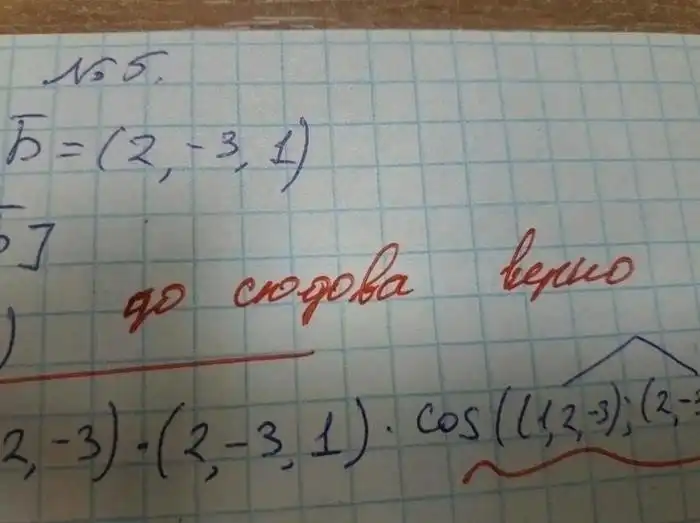 № 5.
Б̅ = (2, -3, 1)
]
до сюдова верно
)
2, -3) · (2, -3, 1) · cos((1, 2, -3); (2, -3